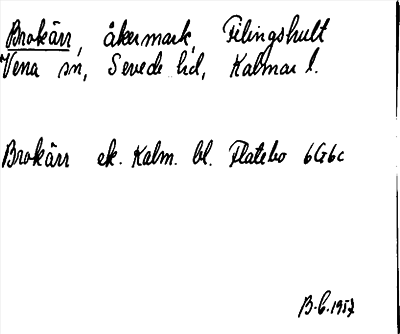 Brokärr, åkermark, Filingshult
Vena sn, Sevede hd, Kalmar l.
Brokärr ek. Kalm. bl. Flatebo 6G6c
B.C. 1957